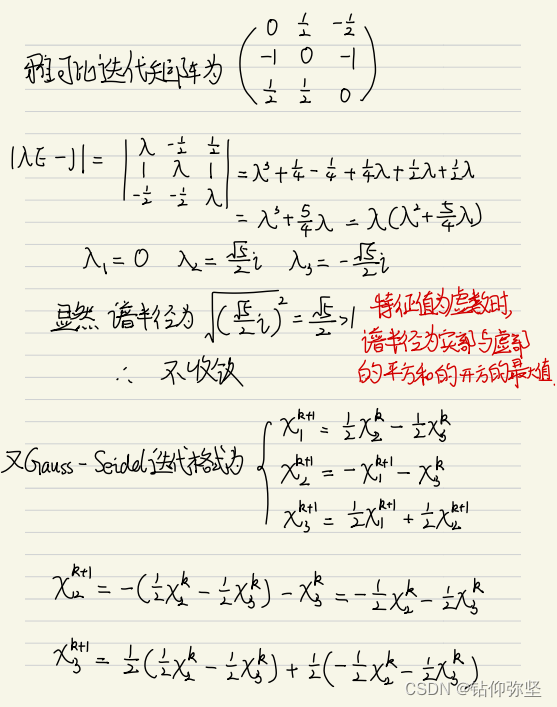 雅可比迭代矩阵为 ( 0 1/2 -1/2
-1 0 -1
1/2 1/2 0 )
|λE-J| = | λ -1/2 1/2
1 λ 1
-1/2 -1/2 λ | = λ³+1/4-1/4+1/4λ+1/2λ+1/2λ
= λ³+5/4λ = λ(λ²+5/4λ)
λ₁=0 λ₂=√5/2 i λ₃=-√5/2 i
显然 谱半径为 √(√5/2 i)² = √5/2 >1
特征值为虚数时,
谱半径为实部与虚部
的平方和的开方的最大值
∴ 不收敛
又Gauss-Seidel迭代格式为 { x₁^{k+1} = 1/2 x₂^k - 1/2 x₃^k
x₂^{k+1} = -x₁^{k+1} - x₃^k
x₃^{k+1} = 1/2 x₁^{k+1} + 1/2 x₂^{k+1}
x₂^{k+1} = -(1/2 x₂^k - 1/2 x₃^k) - x₃^k = -1/2 x₂^k - 1/2 x₃^k
x₃^{k+1} = 1/2(1/2 x₂^k - 1/2 x₃^k) + 1/2(-1/2 x₂^k - 1/2 x₃^k)
CSDN @钻仰弥坚